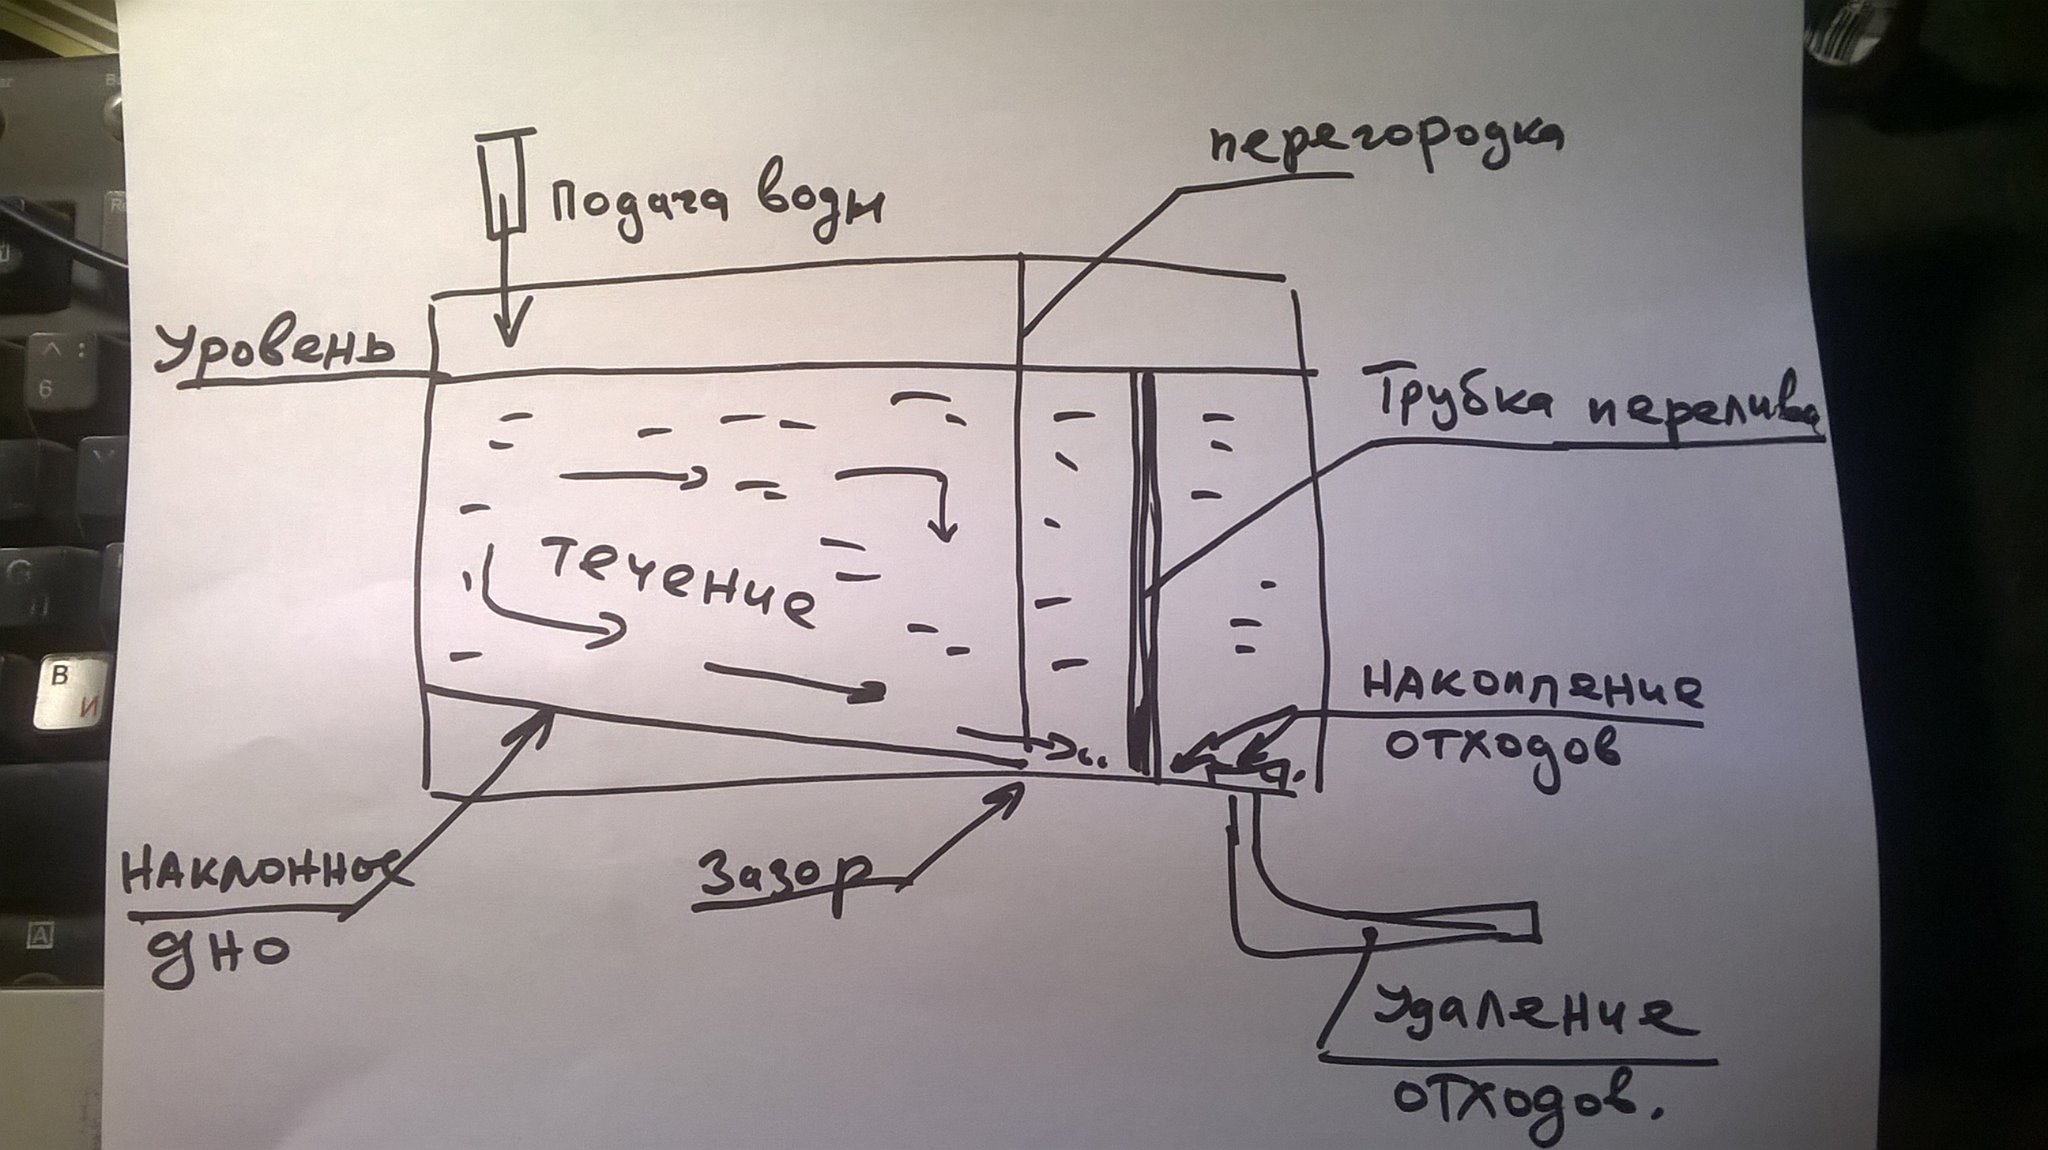 перегородка
Подача воды
Уровень
Трубка перелива
Течение
НАКОПЛЕНИЕ
ОТХОДОВ
НАКЛОННОЕ
ДНО
Зазор
Удаление
ОТХОДОВ.
6
В
И
A